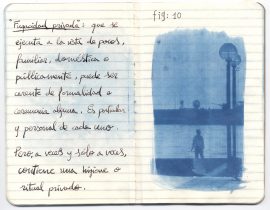 "Fugacidad privada": que se
ejecuta a la vista de pocos,
familiar, doméstica o
públicamente, puede ser
carente de formalidad o
ceremonia alguna. Es particular
y personal de cada uno.
Pero, a veces y solo a veces,
contiene una higiene o
ritual privado.
fig. 10